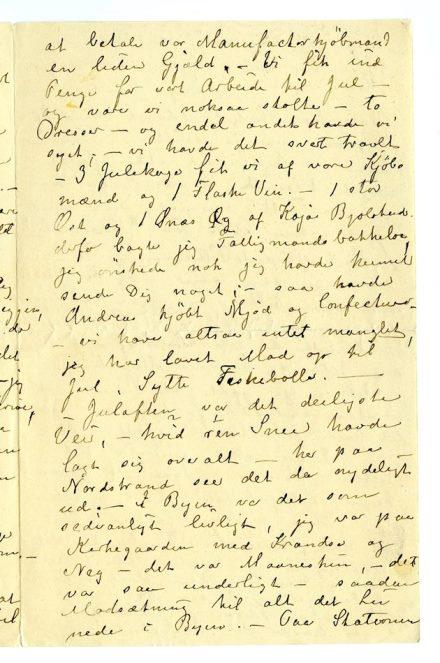 at betale vor Manufacturkjöbmand
en liden Gjæld. – Vi fik ind
Penge for vort Arbeide til Jul –
og vare vi noksaa stolte – to
Dresser – og endel andet havde vi
syet, – vi havde det svært travlt
– 3 Julekage fik vi af vore Kjöb-
mænd og 1 Flaske Vin. – 1 stor
Ost og 1 af Kaja
defor bagte jeg Fattigmandsbakkelse,
jeg önskede nok jeg havde kunnet
sende Dig noget; – saa havde
Andreas kjöbt Mjöd og Confecturer
– vi have altsaa intet manglet,
jeg har lavet Mad op til
Jul, Sylte Feskebolle. –
– Julaften var det deiligste
Veir, – hvid ren Snee havde
lagt sig overalt – her paa
Nordstrand saa det da nydeligt
ud. – I Byen var det som
sedvanligt livligt, jeg var paa
Kirkegaarden med og
– det var Maaneskin, – det
var saa underligt – saadan
Modsætning til alt det Liv
nede i Byen. – Paa Stationen